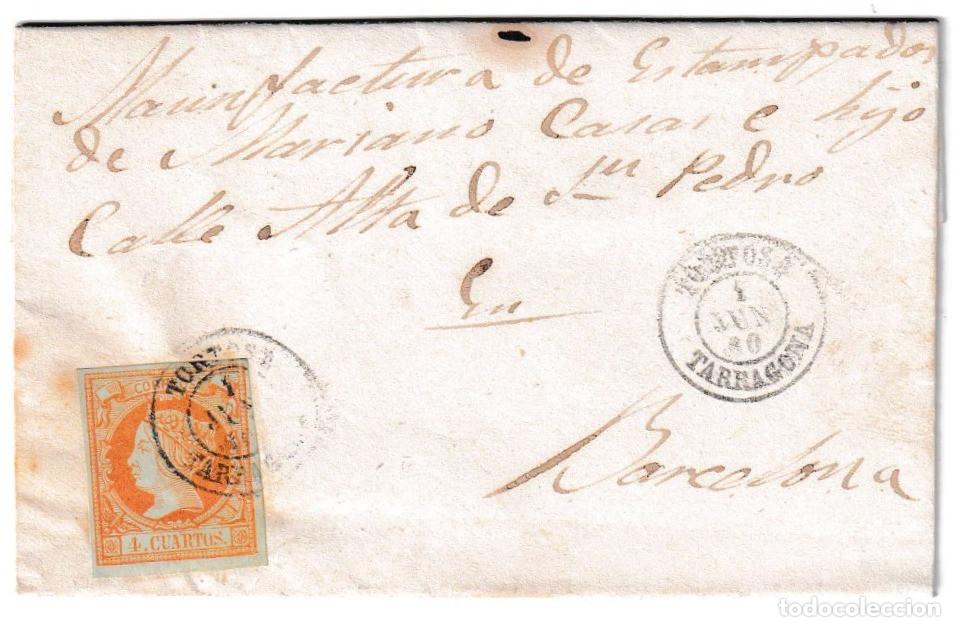 Maunfactura de Estampados
de Mariano Casas e hijo
Calle Alta de Sn Pedro
En
Barcelona
TORTOSA
1
JUN
60
TARRAGONA
TORTOSA
1
TARRAGONA
4. CUARTOS.
todocoleccion